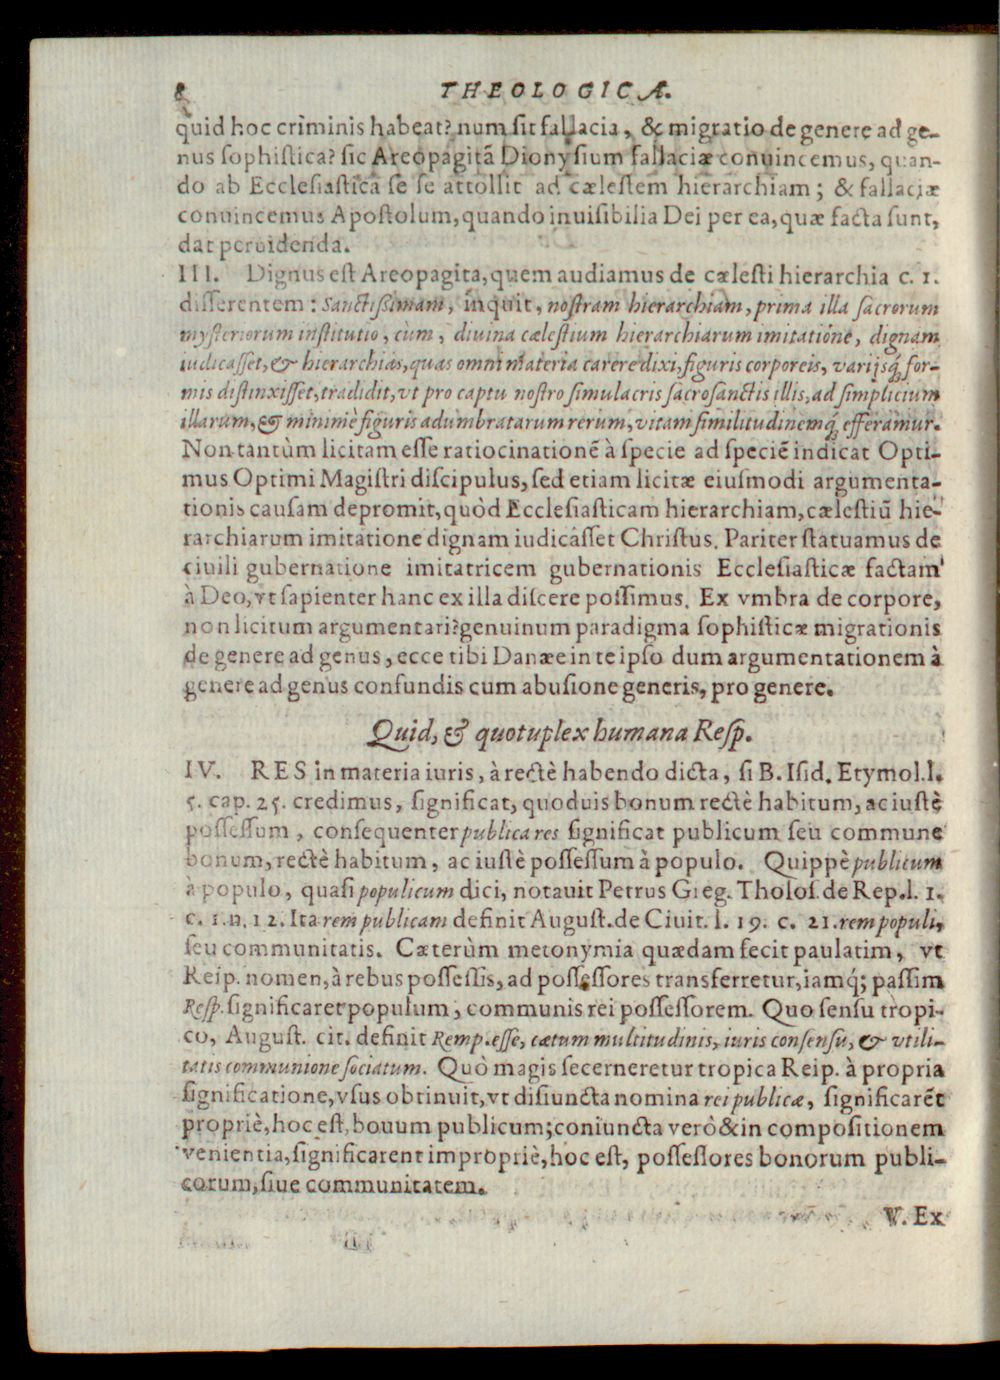 8 THEOLOGICÆ.
quid hoc criminis habeat? num sit fallacia, & migratio de genere ad ge-
nus sophistica? sic Areopagitã Dionysium fallaciæ conuincemus, quan-
do ab Ecclesiastica se se attollit ad cælestem hierarchiam; & fallaciæ
conuincemus Apostolum, quando inuisibilia Dei per ea, quæ facta sunt,
dat peruidenda.
III. Dignus est Areopagita, quem audiamus de cælesti hierarchia c. 1.
disserentem: Sanctissimam, inquit, nostram hierarchiam, prima illa sacrorum
mysteriorum institutio, cùm, diuina cælestium hierarchiarum imitatione, dignam
iudicasset, & hierarchias, quas omni materia carere dixi, figuris corporeis, varijsq́; for-
mis distinxisset, tradidit, vt pro captu nostro simulacris sacrosanctis illis, ad simplicium
illarum, & minimè figuris adumbratarum rerum, vitam similitudinemq́; efferamur.
Non tantùm licitam esse ratiocinationẽ à specie ad speciẽ indicat Opti-
mus Optimi Magistri discipulus, sed etiam licitæ eiusmodi argumenta-
tionis causam depromit, quòd Ecclesiasticam hierarchiam, cælestiũ hie-
rarchiarum imitatione dignam iudicasset Christus. Pariter statuamus de
ciuili gubernatione imitatricem gubernationis Ecclesiasticæ factam
à Deo, vt sapienter hanc ex illa discere possimus. Ex vmbra de corpore,
non licitum argumentari? genuinum paradigma sophisticæ migrationis
de genere ad genus, ecce tibi Danæe in te ipso dum argumentationem à
genere ad genus confundis cum abusione generis, pro genere.
Quid, & quotuplex humana Resp.
IV. RES in materia iuris, à rectè habendo dicta, si B. Isid. Etymol. l.
5. cap. 25. credimus, significat, quoduis bonum rectè habitum, ac iustè
possessum, consequenter publica res significat publicum seu commune
bonum, rectè habitum, ac iustè possessum à populo. Quippè publicum
à populo, quasi populicum dici, notauit Petrus Greg. Tholos. de Rep. l. 1.
c. 1. n. 12. Ita rem publicam definit August. de Ciuit. l. 19. c. 21. rem populi,
seu communitatis. Cæterùm metonymia quædam fecit paulatim, vt
Reip. nomen, à rebus possessis, ad possessores transferretur, iamq́; passim
Resp. significaret populum, communis rei possessorem. Quo sensu tropi-
co, August. cit. definit Remp. esse, cætum multitudinis, iuris consensu, & vtili-
tatis communione sociatum. Quò magis secerneretur tropica Reip. à propria
significatione, vsus obtinuit, vt disiuncta nomina rei publicæ, significarẽt
propriè, hoc est, bouum publicum; coniuncta verò & in compositionem
venientia, significarent impropriè, hoc est, possessores bonorum publi-
corum, siue communitatem.
V. Ex